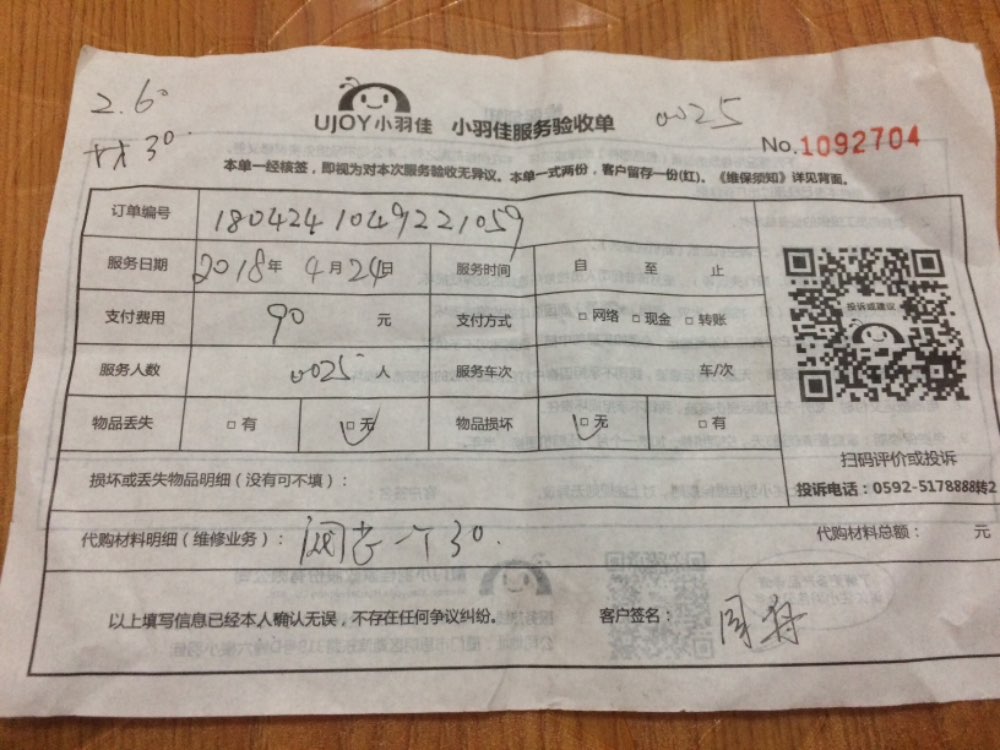 2.60
材30.
UJOY小羽佳 小羽佳服务验收单
0025
No.1092704
本单一经核签，即视为对本次服务验收无异议。本单一式两份，客户留存一份(红)。《维保须知》详见背面。
订单编号 1804241049221059
服务日期 2018年4月24日 服务时间 自 至 止
支付费用 90 元 支付方式 □网络 □现金 □转账
服务人数 0025 人 服务车次 车/次
物品丢失 □有 □无 物品损坏 □无 □有
投诉或建议
扫码评价或投诉
投诉电话：0592-5178888转2
损坏或丢失物品明细（没有可不填）：
代购材料明细（维修业务）： 一个30. 代购材料总额： 元
以上填写信息已经本人确认无误，不存在任何争议纠纷。 客户签名：